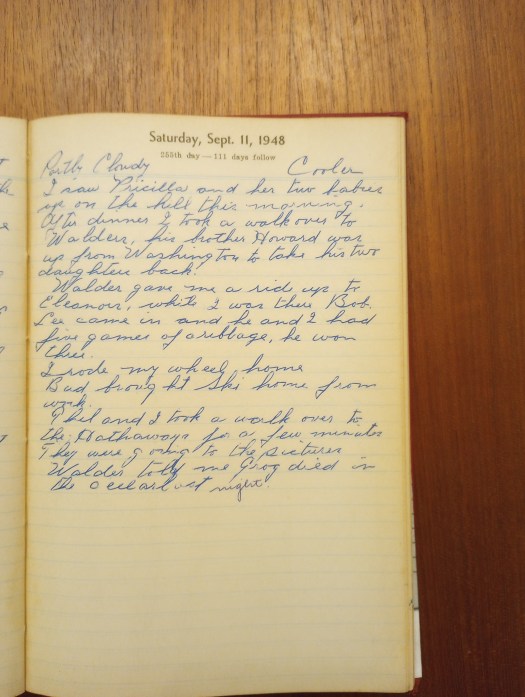 Saturday, Sept. 11, 1948
255th day—111 days follow
Partly Cloudy Cooler
I saw Pricilla and her two babies
up on the hill this morning.
After dinner I took a walk over to
Walders, his brother Howard was
up from Washington to take his two
daughters back.
Walder gave me a rid up to
Eleanors, while I was there Bob.
Lee came in and he and I had
five games of cribbage, he won
three.
I rode my wheel home
Bud brought Ski home from
work.
Phil and I took a walk over to
the Hathaways for a few minutes
They were going to the pictures
Walder told me Grog died in
the last night.